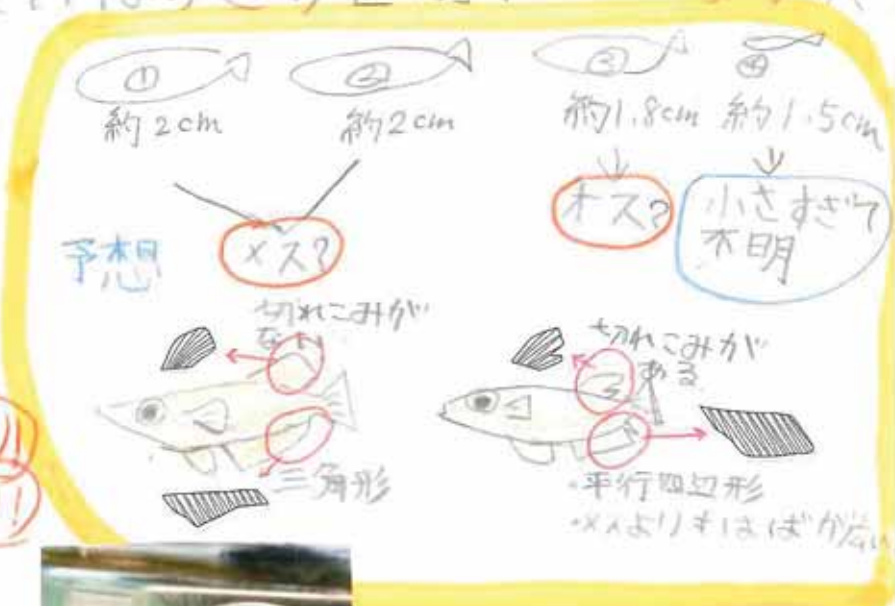 ① ② ③ ④
約2cm 約2cm 約1.8cm 約1.5cm
予想
メス?
オス?
小さすぎて
不明
切れこみが
ない
三角形
切れこみが
ある
・平行四辺形
・メスよりもはばが広い